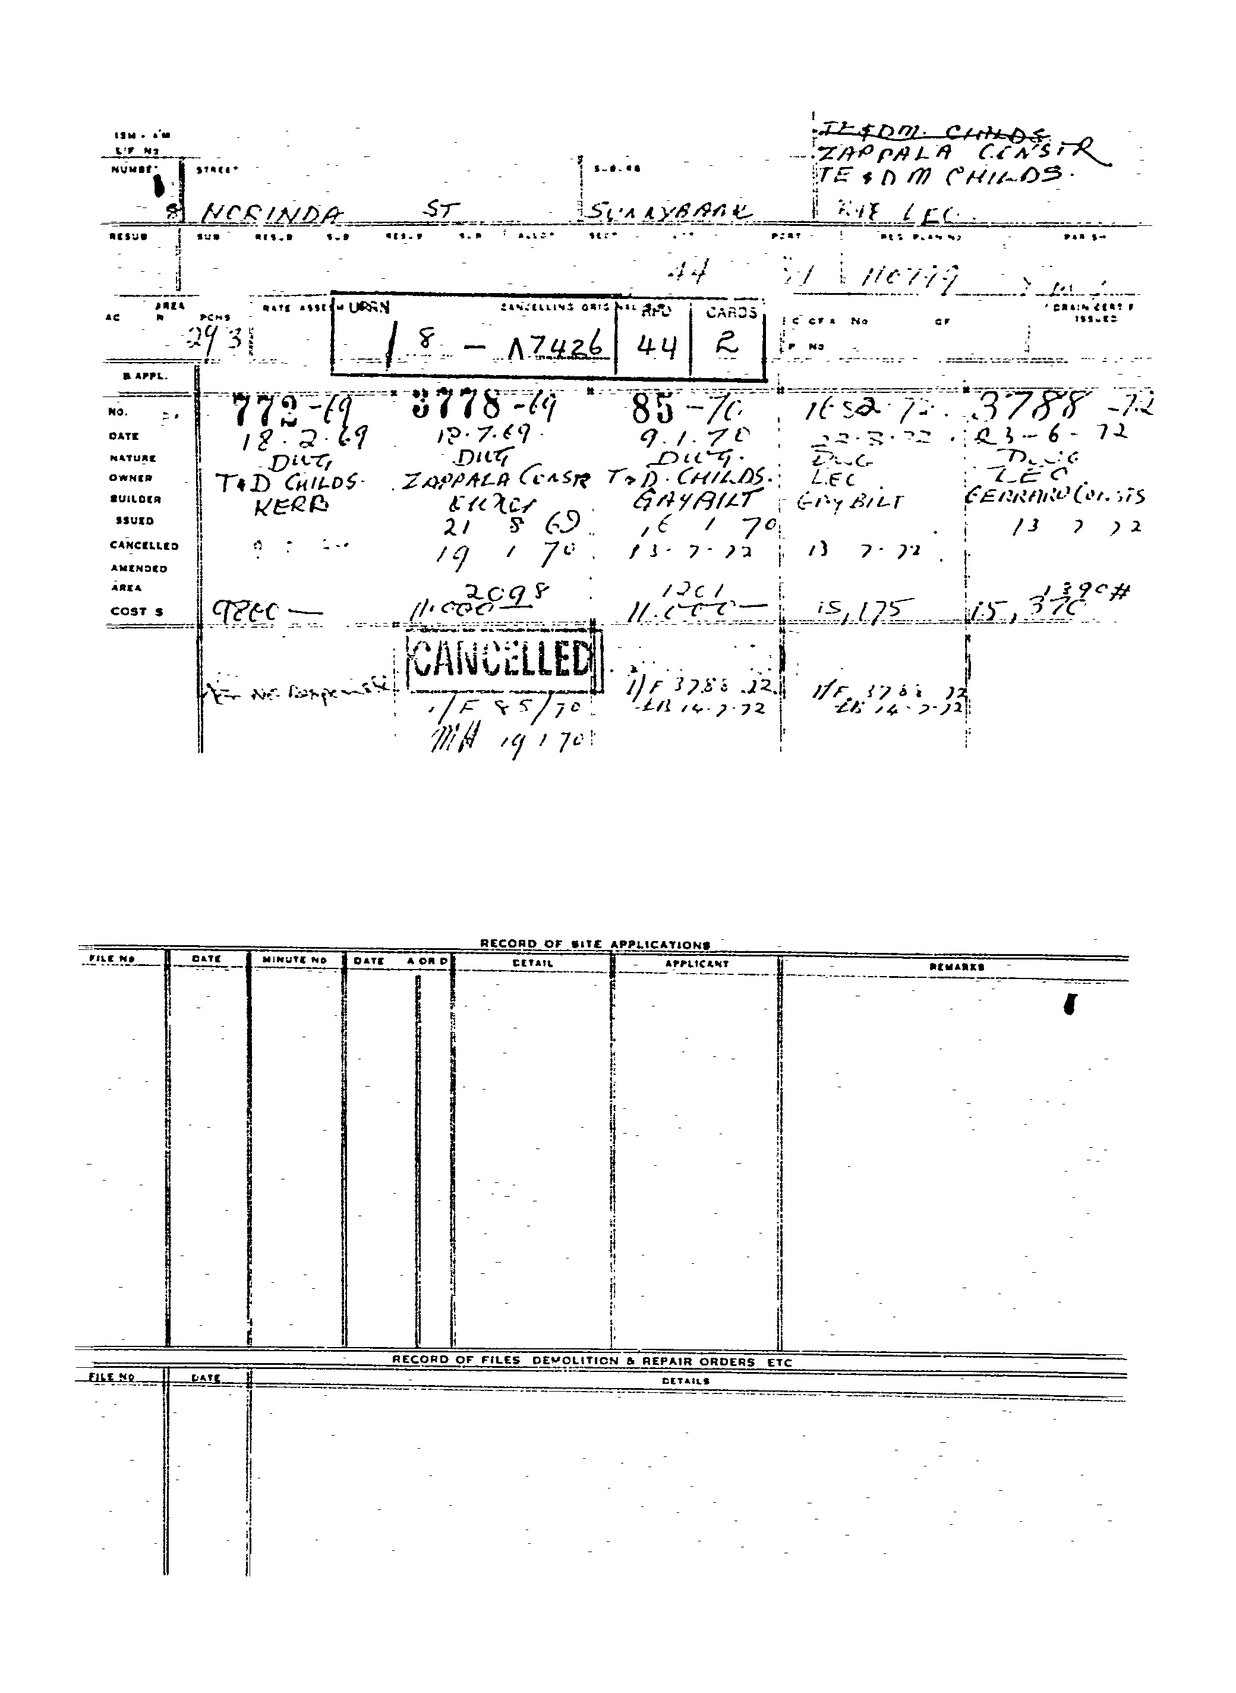 TE & DM. CHILDS
ZAPPALA CONSTR
NUMBER STREET SUBURB TE & DM CHILDS.
8 NORINDA ST SUNNYBANK LEC
RESUB SUB RESUB SUB RESUB SUB ALLOT SECT PORT REG PLAN NO PARISH
44 110799
AREA RATE ASSESSM UPRN CANCELLING ORIGINAL RPD CARDS DRAIN CERT F
AC R PCHS ISSUED
29.3 1 8 - A7426 44 2
B APPL.
NO. 772-69 3778-69 85-70 1652.72 3788-72
DATE 18.2.69 18.7.69 9.1.70 23-6-72
NATURE DWG DWG DWG. DWG DWG
OWNER T&D CHILDS. ZAPPALA CONSTR T&D. CHILDS. LEC LEC
BUILDER KERR GAYBILT GAYBILT GERRARD CONSTS
ISSUED 21 8 69 16 1 70 13 7 72
CANCELLED 19 1 70 13-7-72 13 7-72
AMENDED
AREA 2098 1201 1390#
COST $ 9800— 11.000— 11.000— 15,175 15,370
CANCELLED
I/F 85/70 I/F 3788 72 I/F 3788 72
19 1 70 14-7-72 14-7-72
RECORD OF SITE APPLICATIONS
FILE NO DATE MINUTE NO DATE A OR D DETAIL APPLICANT REMARKS
RECORD OF FILES DEMOLITION & REPAIR ORDERS ETC
FILE NO DATE DETAILS